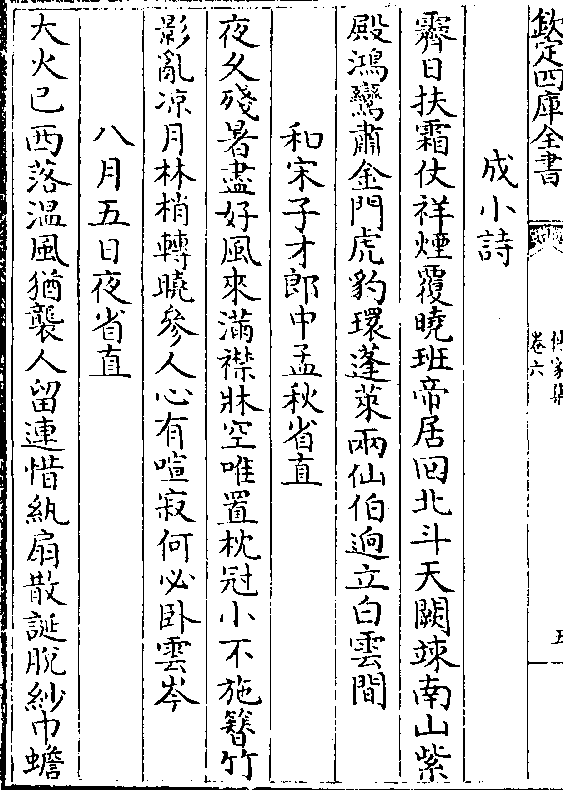 欽定四庫全書
傳家集
卷六
五
成小詩
霽日扶霜仗祥煙覆曉班帝居回北斗天闕竦南山紫
殿鴻鸞肅金門虎豹環蓬萊兩仙伯逈立白雲間
和宋子才郎中孟秋省直
夜久殘暑盡好風來滿襟牀空唯置枕冠小不施簪竹
影亂凉月林梢轉曉參人心有喧寂何必卧雲岑
八月五日夜省直
大火已西落温風猶襲人留連惜紈扇散誕脫紗巾蟾